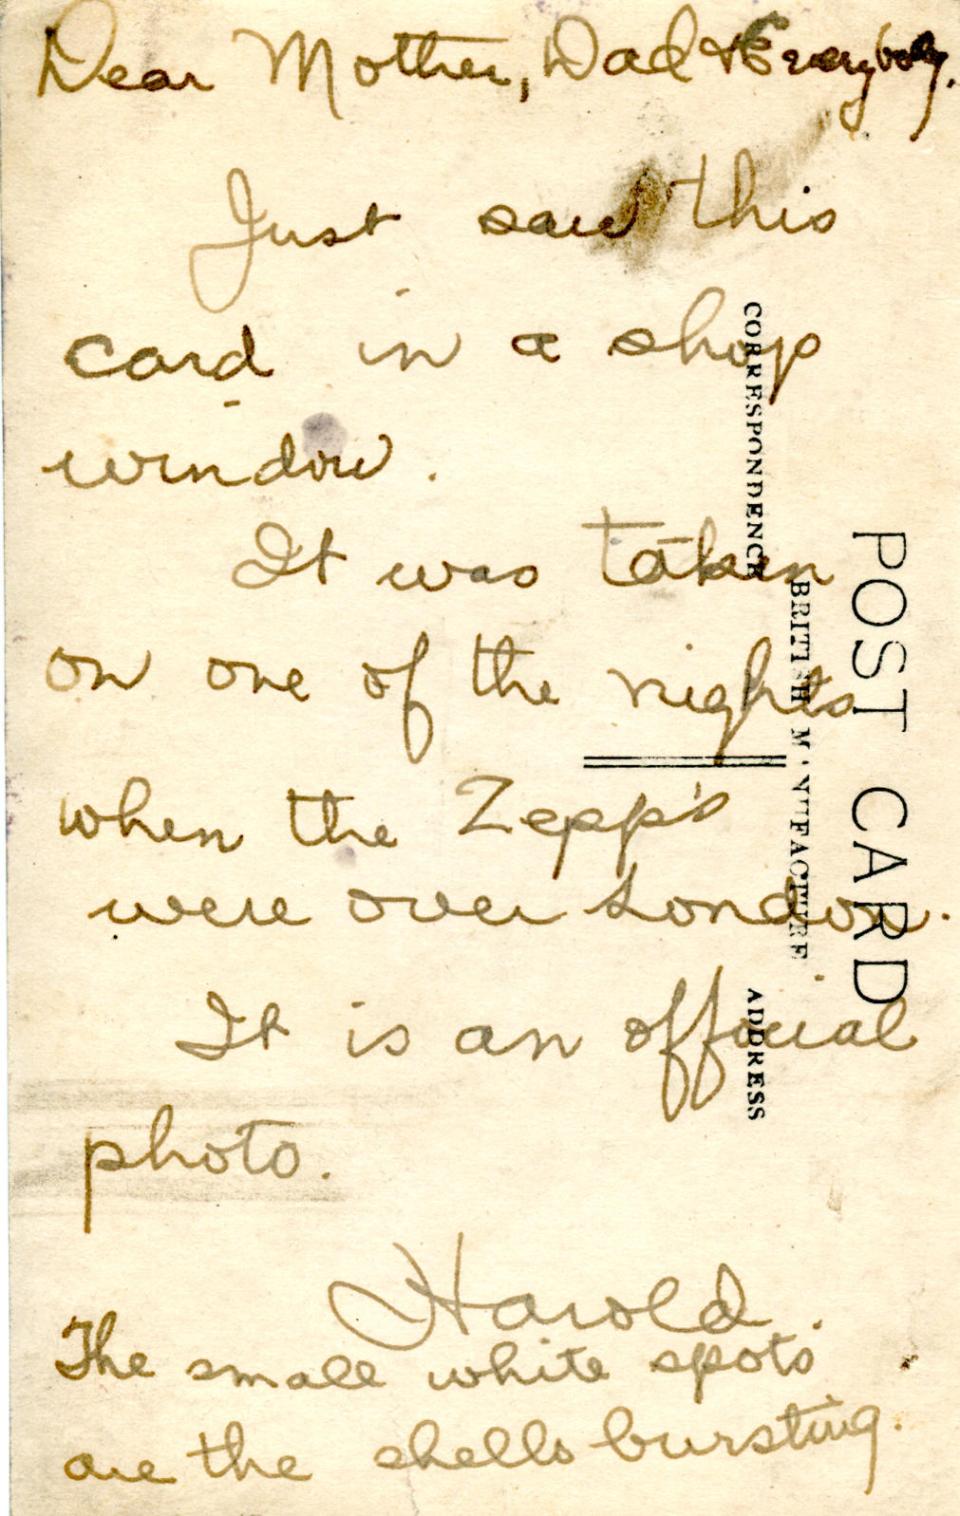 Dear Mother, Dad & Everybody.
Just saw this
card in a shop
window.
It was taken
on one of the nights
when the Zepp's
were over London.
It is an official
photo.
Harold.
The small white spots
are the shells bursting.
POST CARD
BRITISH MANUFACTURE
CORRESPONDENCE
ADDRESS